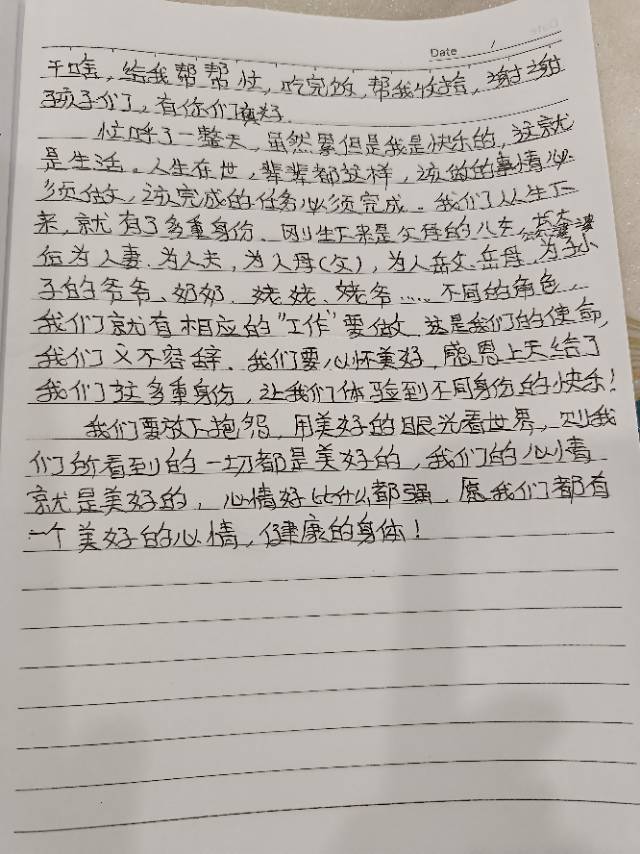 Date /
干啥，给我帮帮忙，吃完饭，帮我收拾，谢谢
孩子们了。有你们真好。
忙呼了一整天，虽然累但是我是快乐的，这就
是生活。人生在世，辈辈都这样，该做的事情必
须做，该完成的任务必须完成。我们从生下
来，就有了多重身份、刚生下来是父母的儿女、公公婆婆
后为人妻、为人夫，为人母(父)，为人岳父、岳母、为子小
子的爷爷、奶奶、姥姥、姥爷……不同的角色……
我们就有相应的“工作”要做，这是我们的使命，
我们义不容辞、我们要心怀美好，感恩上天给了
我们这多重身份，让我们体验到不同身份的快乐！
我们要放下抱怨，用美好的眼光看世界，则我
们所看到的一切都是美好的，我们的心情
就是美好的，心情好比什么都强、愿我们都有
一个美好的心情，健康的身体！